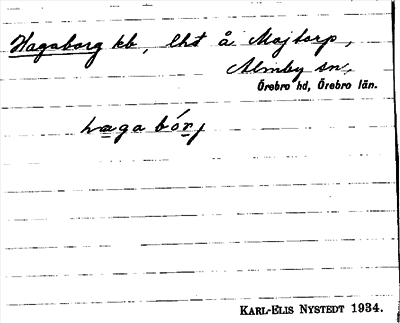 Hagaborg kb, lht å Mojtorp,
Almby sn,
Örebro hd, Örebro län.
haga bórj
KARL-ELIS NYSTEDT 1934.